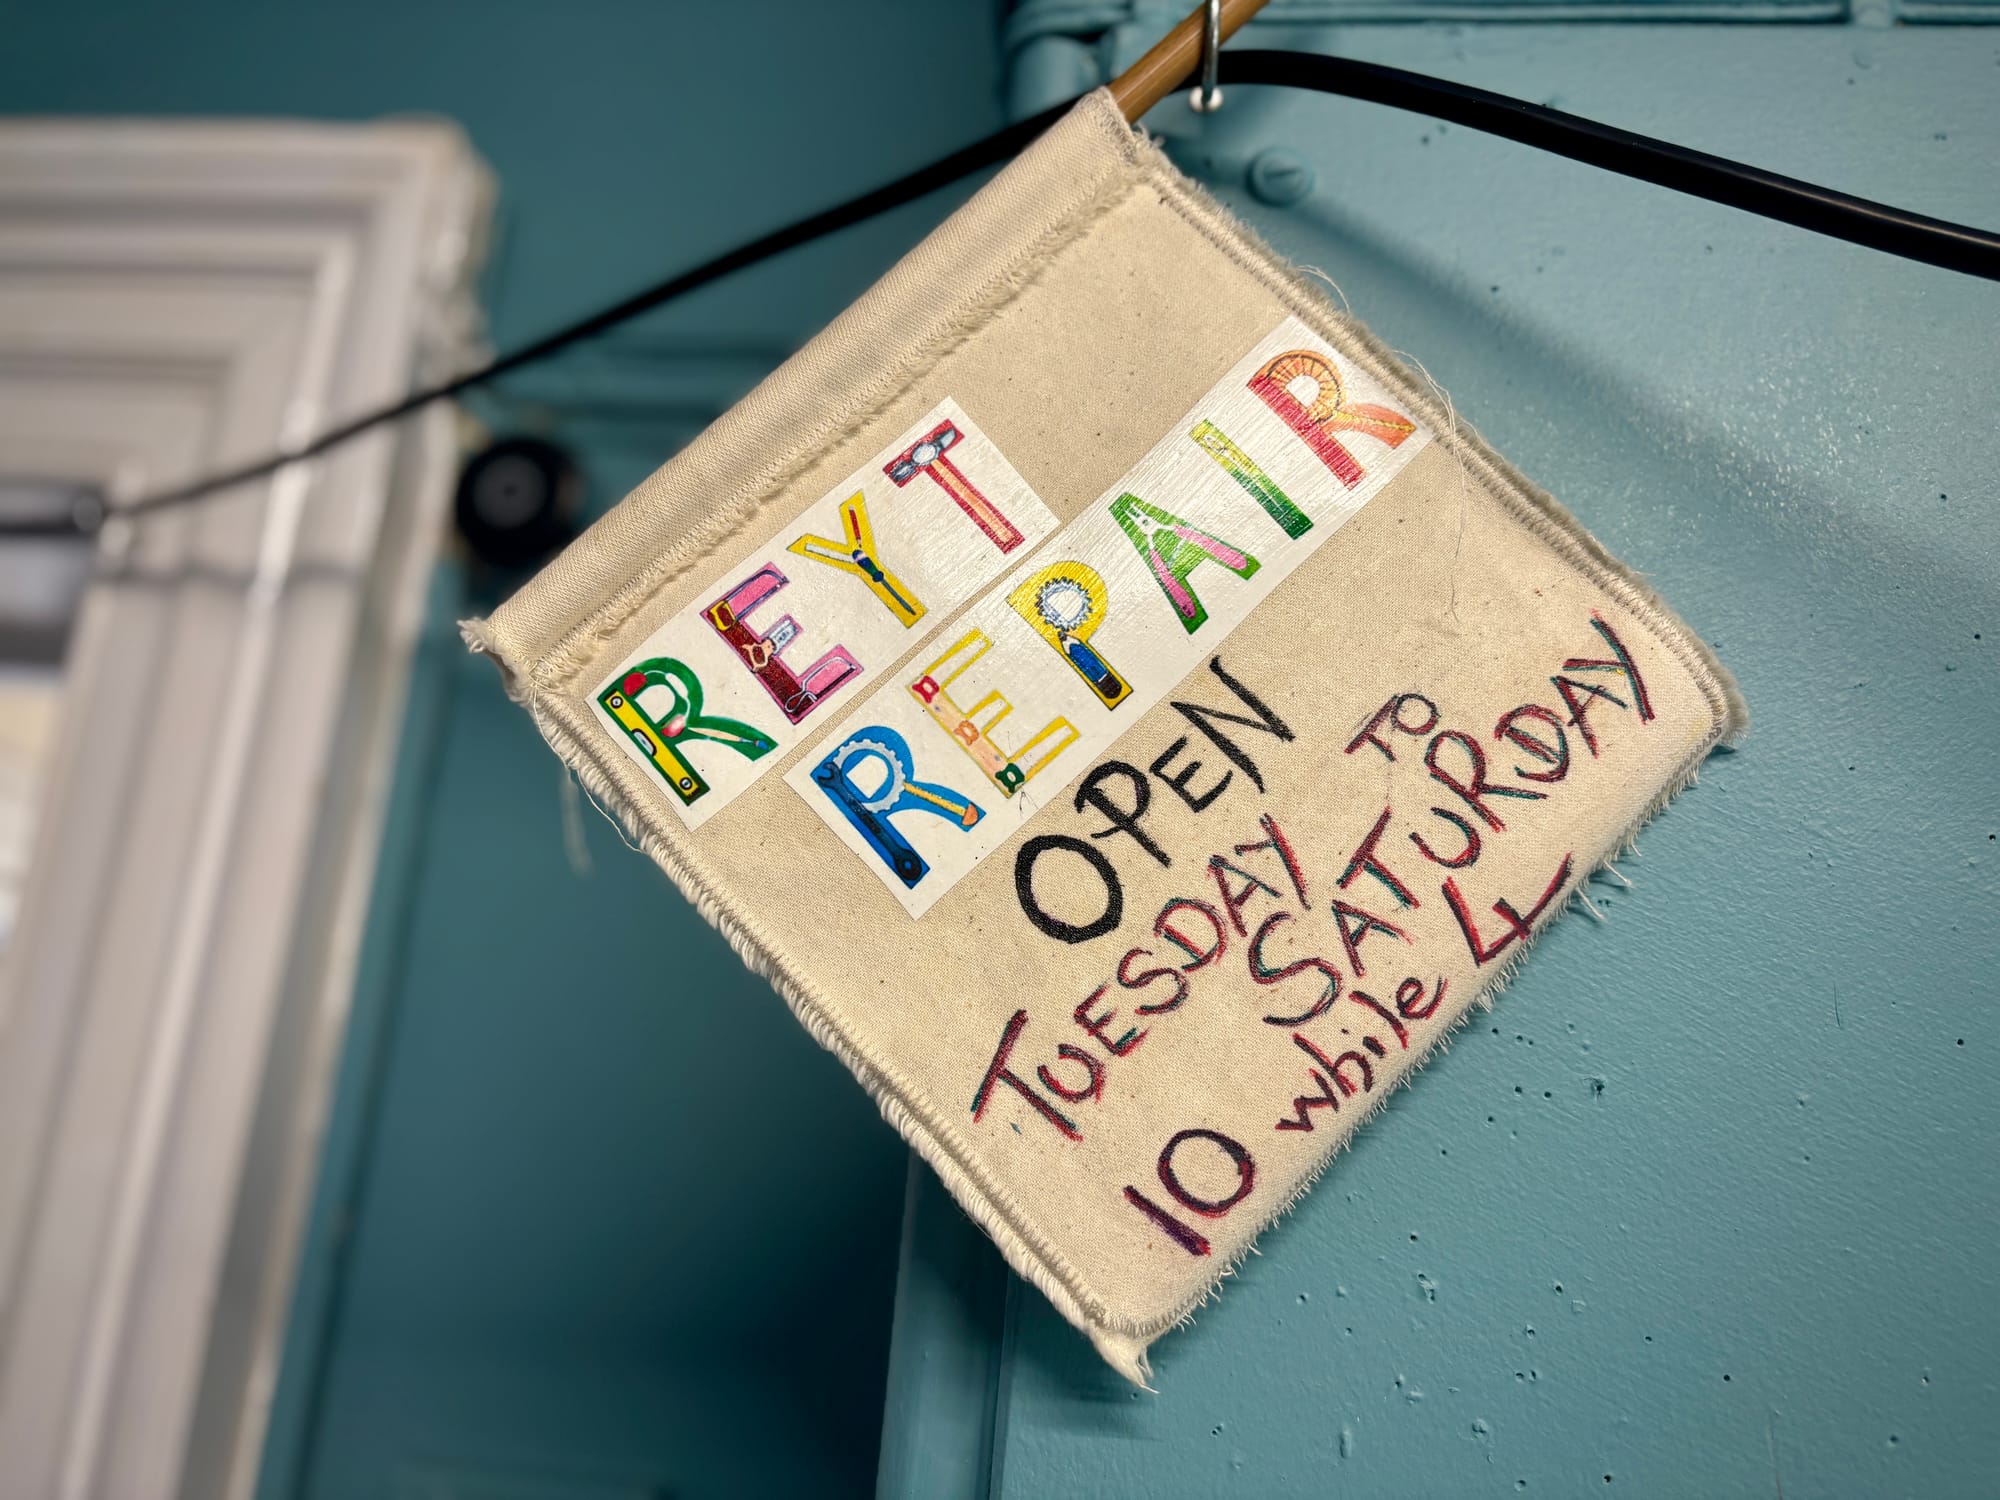 REYT
REPAIR
OPEN
TUESDAY TO
SATURDAY
10 while 4